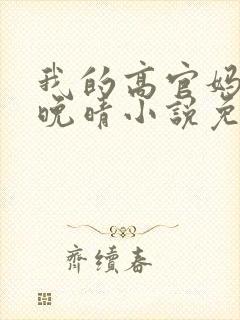 我的高官妈
晚晴小说免
齊續春